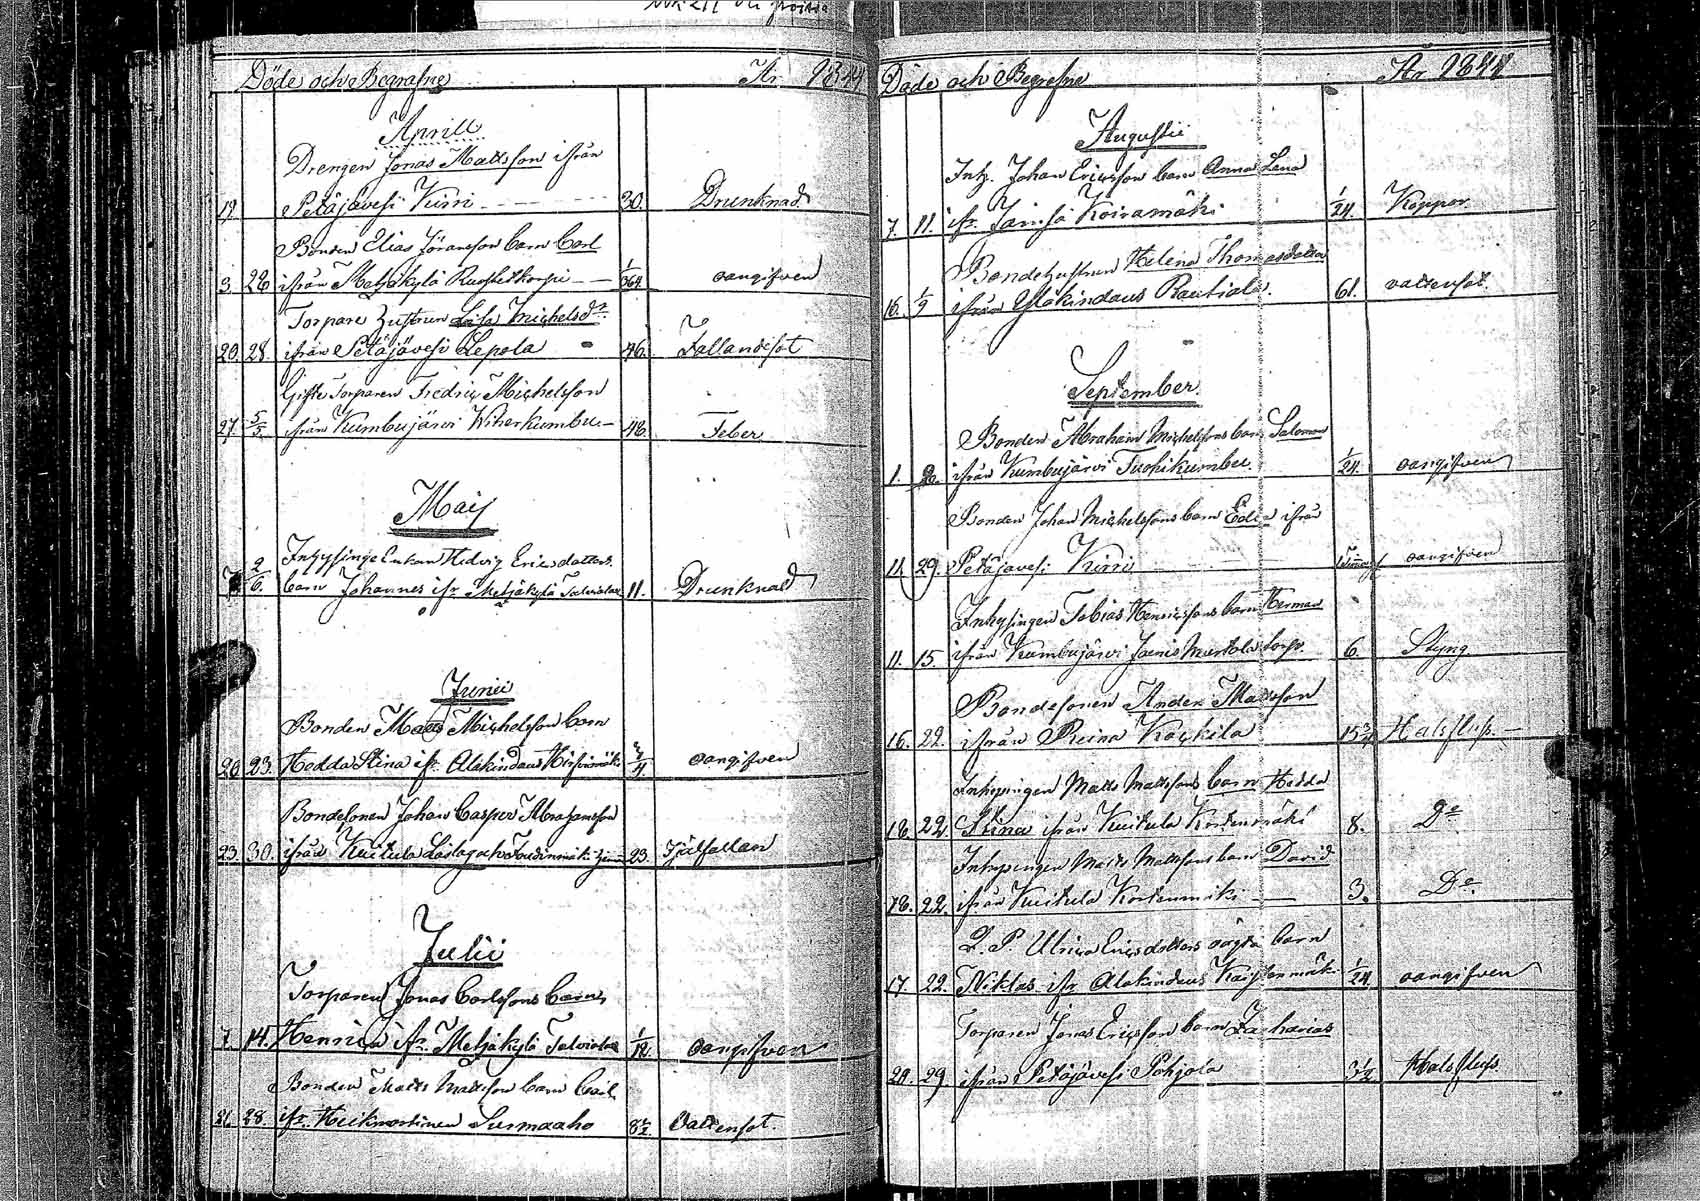 Döde och Begrafne År 1844
Aprill
Drengen Jonas Mattsson ifrån
19. Petäjävesi Kurri 30. Drunknad
Bonden Elias Göransson barn Carl
3 28 ifrån Metjäkylä 1/364 oangifven
Torpare hustrun Lisa Michelsdr.
20. 28. ifrån Petäjävesi Lepola 46. Fallandesot
Gifte Torparen Fredric Michelsson
27. 5/5. ifrån Kumbujärvi Wiherkumbu 48. Feber
Maij
Inhysinge Enkan Hedvig Ericsdotters
2/6. barn Johannes ifr. Metjäkylä 11. Drunknad
Junii
Bonden Matts Michelsson barn
20. 23. Hedda Stina ifr. Alakindaus Hirsimäki oangifven
Bondesonen Johan Casper Abrahamsson
23. 30. ifrån Kuitula 23. Ihjälfallen
Julii
Torparen Jonas Carlssons barn
7. 14. Henric ifr. Metjäkylä 1/12. oangifven
Bonden Matts Mattsson barn Carl
21. 28. ifr. Surmaaho Vattensot.
Döde och Begrafne År 1844
Augustii
Inh. Johan Ericsson barn Anna Lena
7. 11. ifr. Jämsä Koiramäki 1/24. Koppor
Bondehustrun Helena Thomasdotter
16. 1/9 ifrån Yläkindaus Rautiala 61. vattensot.
September.
Bonden Abraham Michelssons barn Salomon
1. ifrån Kumbujärvi Tuohikumbu. 1/24. oangifven
Bonden Johan Michelssons barn ifrån
11. 29. Petäjävesi Kurri oangifven
Inhysingen Tobias Henricssons barn Herman
11. 15. ifrån Kumbujärvi torp. 6. Styng
Bondesonen Anders Mattsson
16. 22. ifrån 15 3/4 Halsfluss.
Inhysingen Matts Mattssons barn Hedda
18. 22. Stina ifrån Kuitula Kortenmäki 8. Do
Inhysingen Matts Mattssons barn David
18. 22. ifrån Kuitula Kortenmäki 3. Do
Ulrica Ericsdotters oägta barn
17. 22. Niklas ifr. Alakindaus 1/24. oangifven
Torparen Jonas Ericsson barn Zacharias
20. 29. ifrån Petäjävesi Pohjola 3 1/2 Halsfluss.